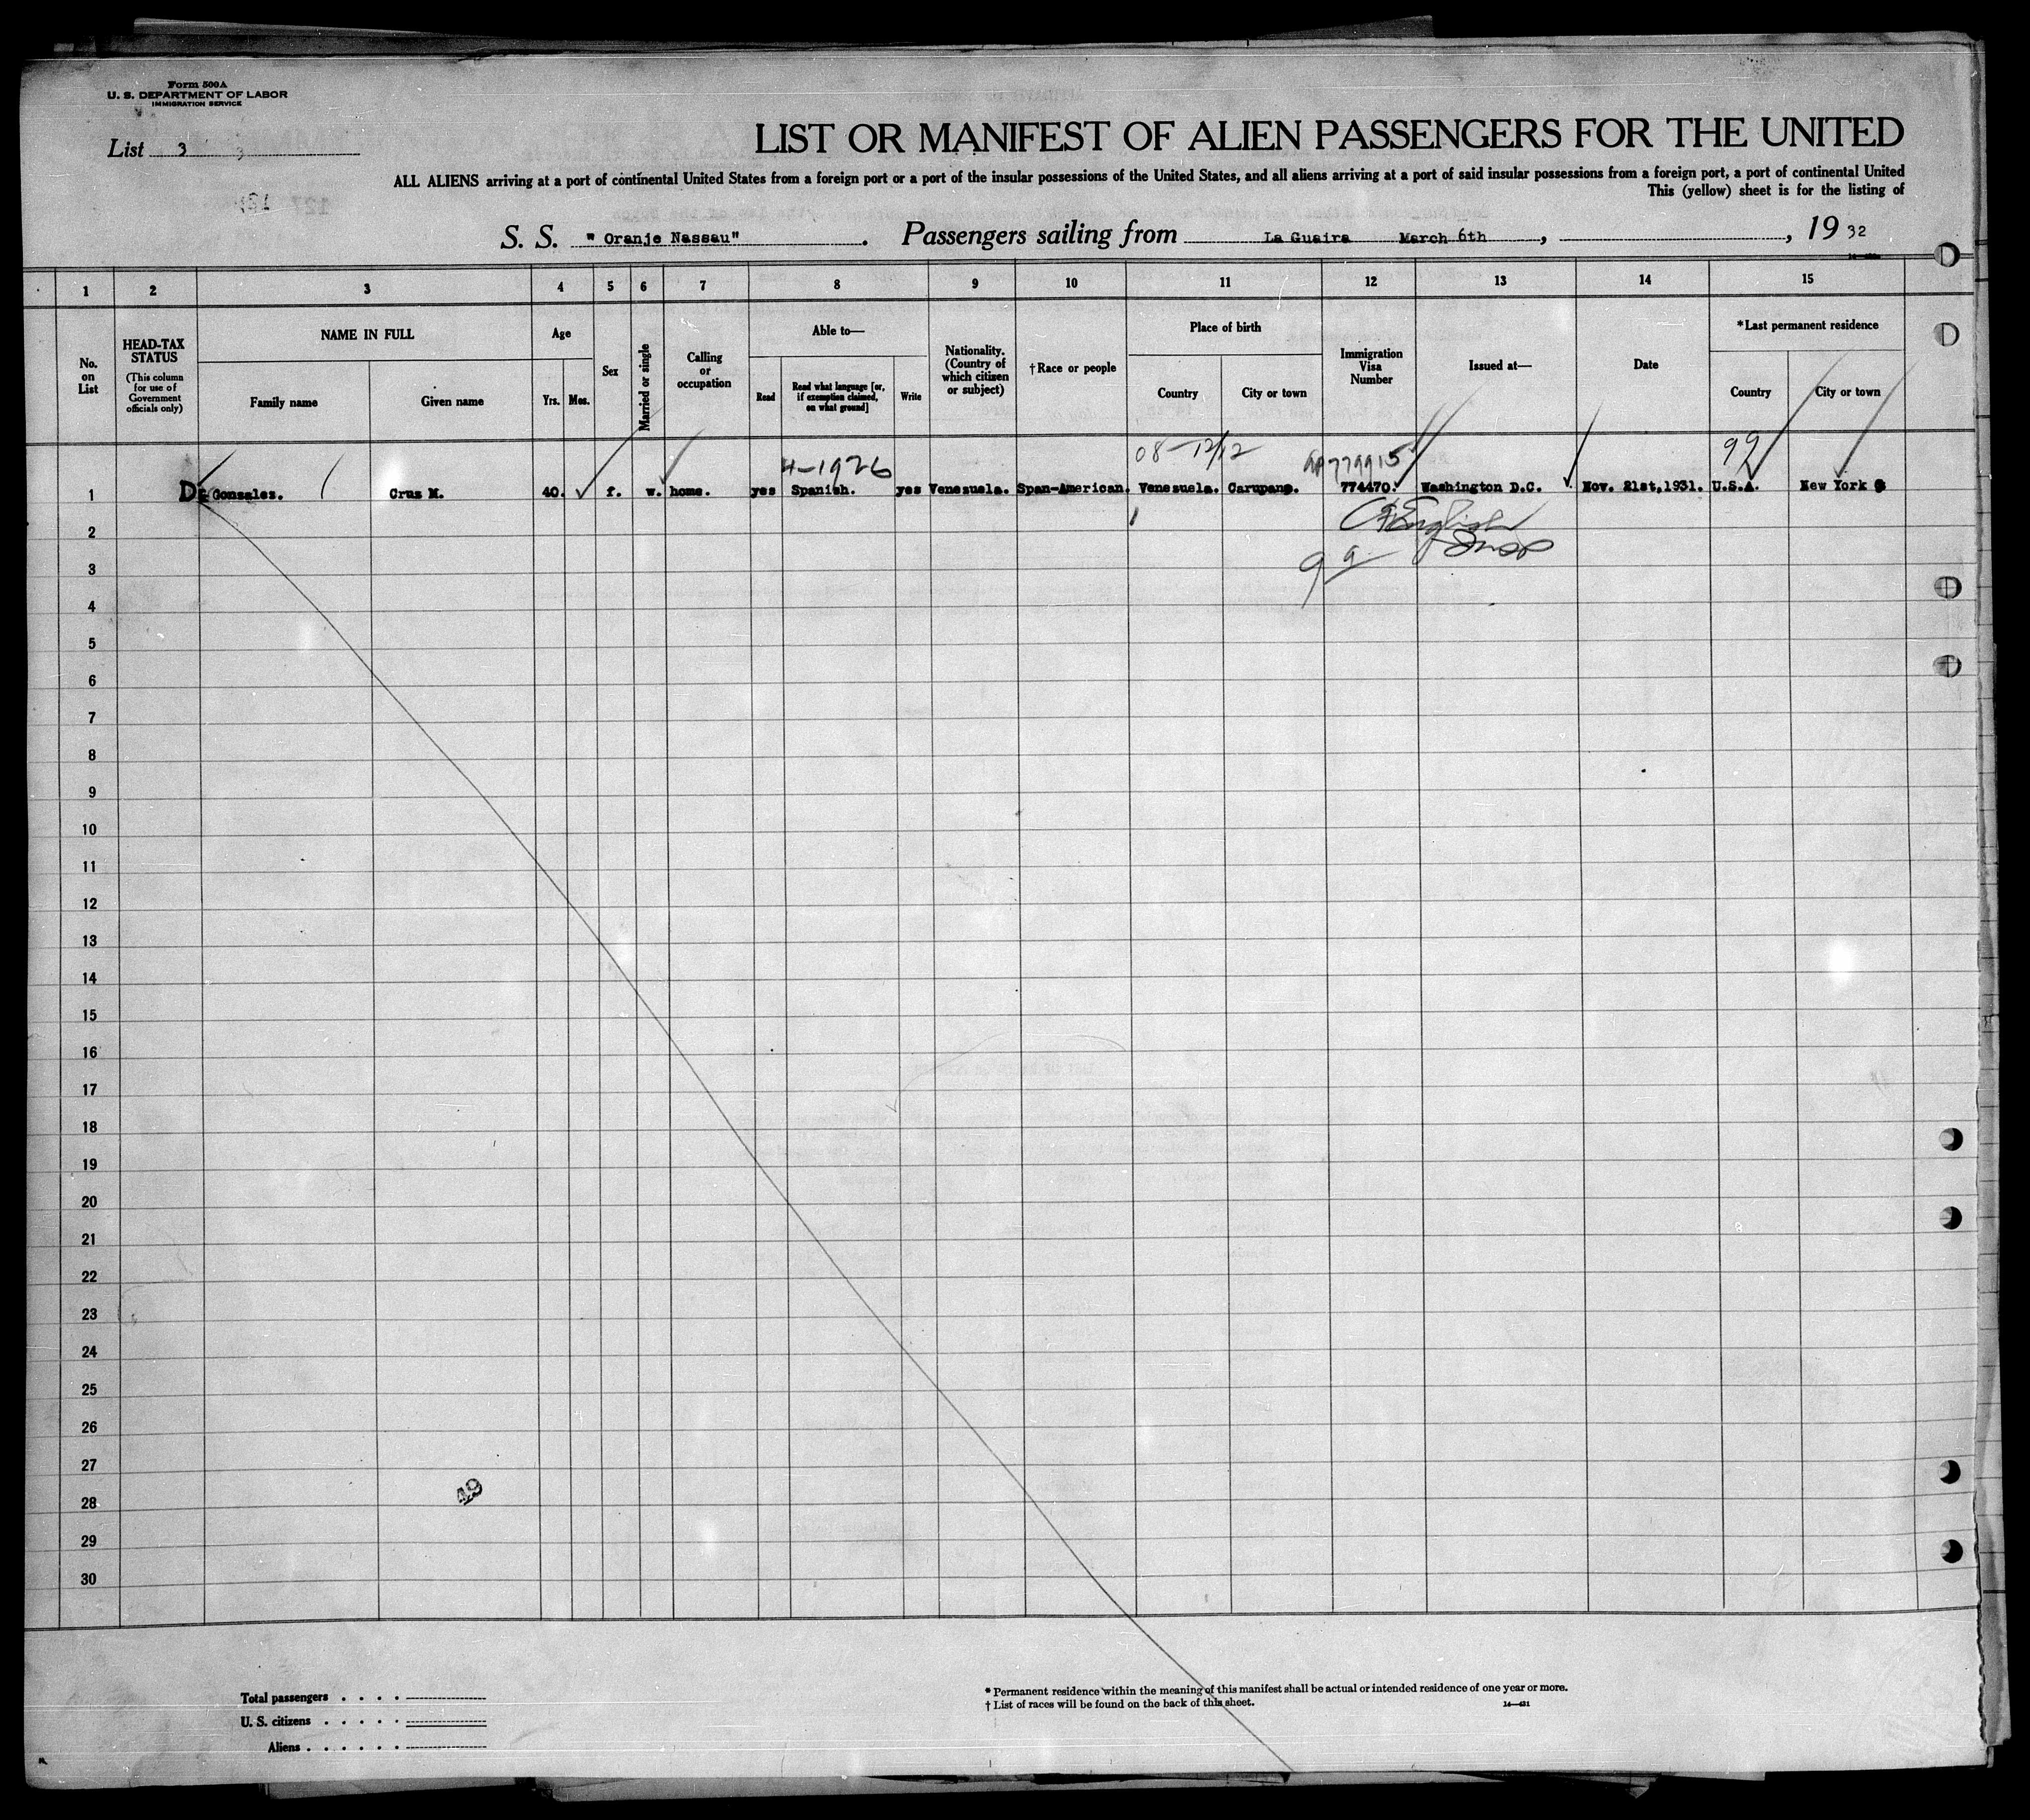 Form 500A
U. S. DEPARTMENT OF LABOR
IMMIGRATION SERVICE
List 3
LIST OR MANIFEST OF ALIEN PASSENGERS FOR THE UNITED
ALL ALIENS arriving at a port of continental United States from a foreign port or a port of the insular possessions of the United States, and all aliens arriving at a port of said insular possessions from a foreign port, a port of continental United
This (yellow) sheet is for the listing of
S. S. "Oranje Nassau". Passengers sailing from La Guaira March 6th, , 19 32
1 2 3 4 5 6 7 8 9 10 11 12 13 14 15
No. on List
HEAD-TAX STATUS
(This column for use of Government officials only)
NAME IN FULL
Family name
Given name
Age
Yrs. Mos.
Sex
Married or single
Calling or occupation
Able to—
Read
Read what language [or, if exemption claimed, on what ground]
Write
Nationality. (Country of which citizen or subject)
†Race or people
Place of birth
Country
City or town
Immigration Visa Number
Issued at—
Date
*Last permanent residence
Country
City or town
4-1926 08-12/12 99
1 Gonzalez. Cruz M. 40. f. w. home. yes Spanish. yes Venezuela. Span-American. Venezuela. Carupano. 774470. Washington D.C. Nov. 21st,1931. U.S.A. New York
English
2
3
4
5
6
7
8
9
10
11
12
13
14
15
16
17
18
19
20
21
22
23
24
25
26
27
28
49
29
30
Total passengers . . . .
U. S. citizens . . . . .
Aliens . . . . . .
* Permanent residence within the meaning of this manifest shall be actual or intended residence of one year or more.
† List of races will be found on the back of this sheet.
14—431